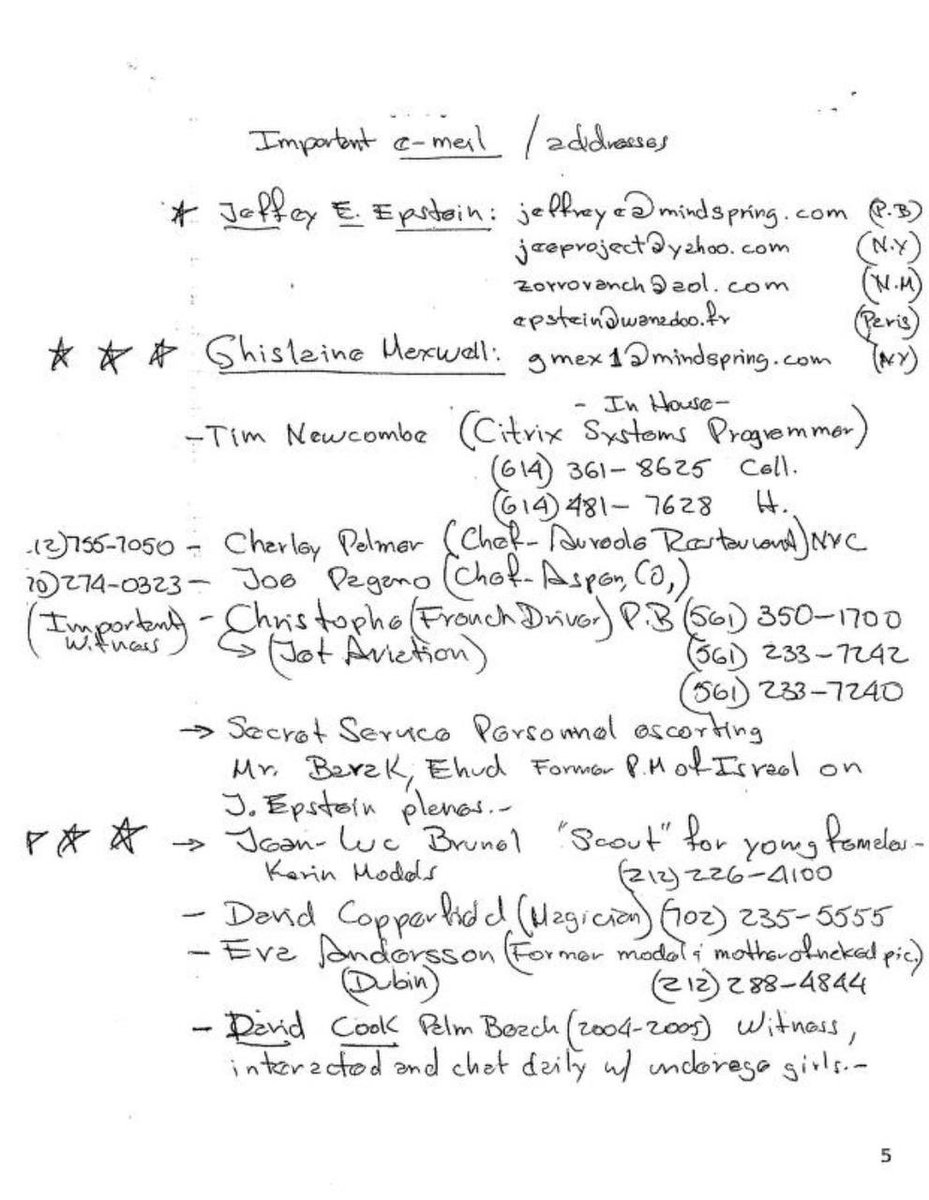 Important e-mail / addresses
* Jeffey E. Epstein: jeffreye@mindspring.com (P.B)
jeeproject@yahoo.com (N.Y)
zorroranch@aol.com (N.M)
epstein@wanadoo.fr (Paris)
☆ ☆ ☆ Ghislaine Maxwell: gmax1@mindspring.com (NY)
- In House -
- Tim Newcombe (Citrix Systems Programmer)
(614) 361-8625 Cell.
(614) 481-7628 H.
12)755-7050 - Charley Palmer (Chef - Aureole Restaurant) NYC
70)274-0323 - Joe Pagano (Chef - Aspen, CO,)
(Important Witness) - Christophe (French Driver) P.B (561) 350-1700
↳ (Jet Aviation) (561) 233-7242
(561) 233-7240
→ Secret Service Personnel escorting
Mr. Barak, Ehud Former P.M of Israel on
J. Epstein planes.-
☆ ☆ ☆ → Jean-Luc Brunel "Scout" for young females.-
Karin Models (212) 226-4100
- David Copperfield (Magician) (702) 235-5555
- Eva Andersson (Former model & mother of naked pic.)
(Dubin) (212) 288-4844
- David Cook Palm Beach (2004-2005) Witness,
interacted and chat daily w/ underage girls.-
5